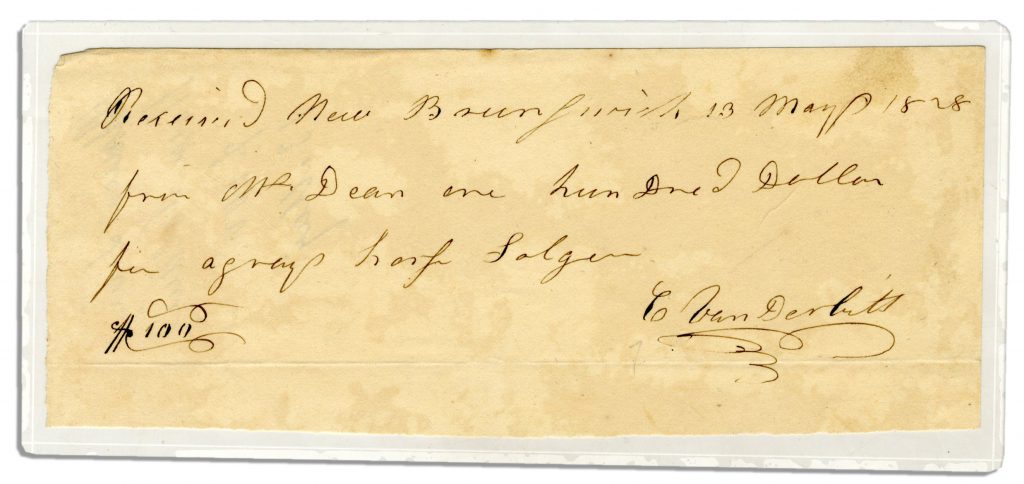 Received New Brunswick 13 May 1828
from Mr Dean one hundred Dollar
for a gray horse
$100
C VanDerbilt